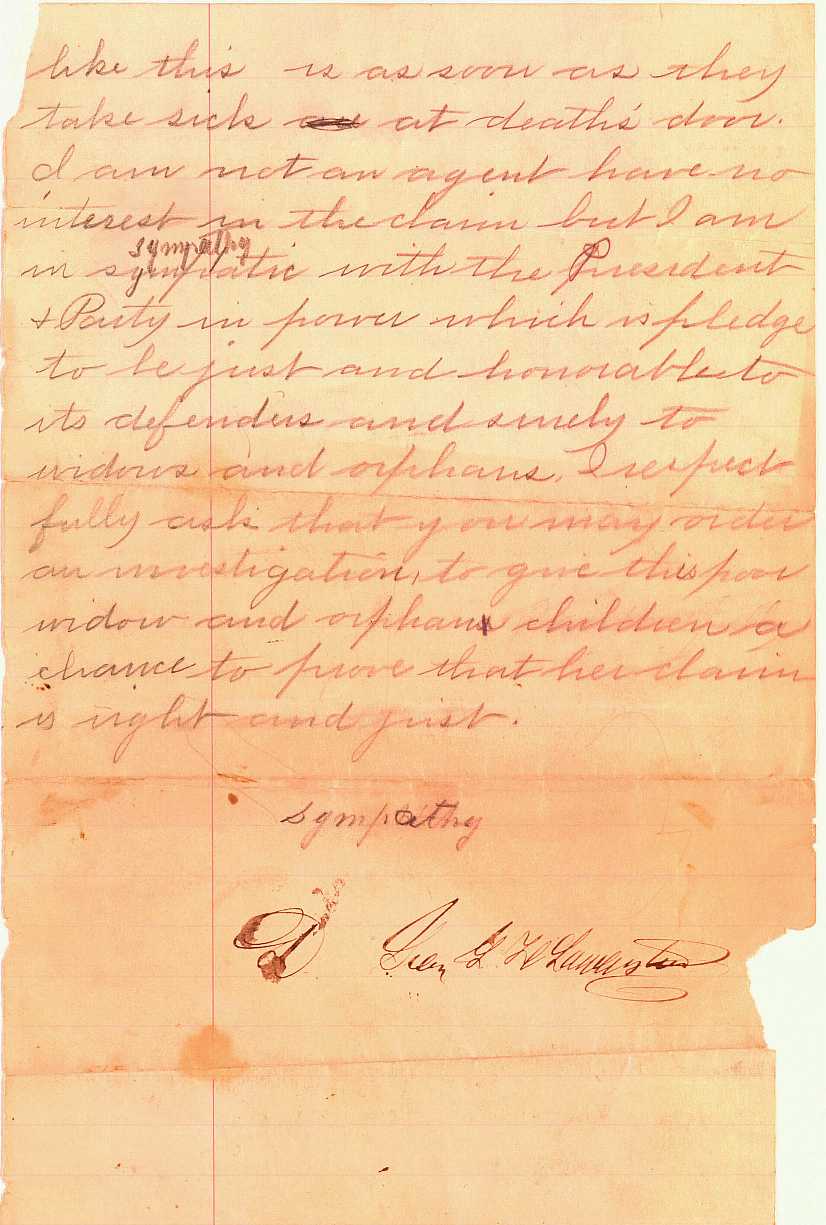 like this is as soon as they
take sick at death's door.
I am not an agent have no
interest in the claim but I am
sympathy
in sympatic with the President
& Party in power which is pledge
to be just and honorable to
its defenders and surely to
widows and orphans. I respect
fully ask that you may order
an investigation, to give this poor
widow and orphans children a
chance to prove that her claim
is right and just.
sympathy
D